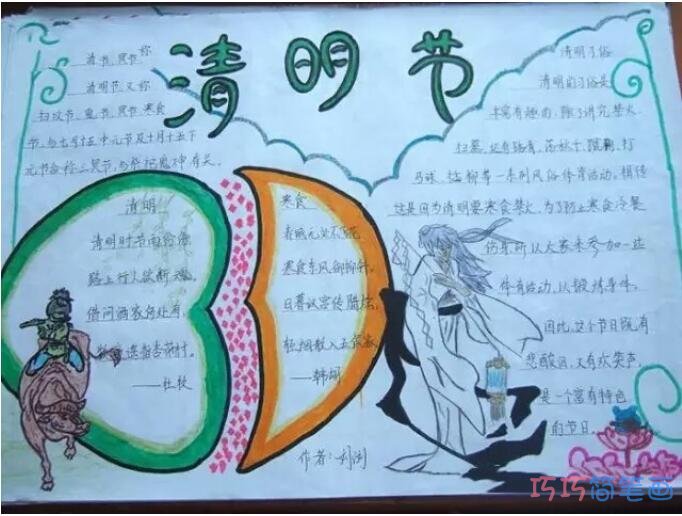 清明节
清节、冥节 你
清明节 又称
扫坟节、鬼节、冥节、寒食
节,与七月十五中元节及十月十五下
元节合称三冥节,与祭祀鬼神有关。
清明
清明时节雨纷纷
路上行人欲断魂。
借问酒家何处有,
牧童遥指杏花村。
——杜牧
寒食
春城无处不飞花
寒食东风御柳斜。
日暮汉宫传腊烛,
轻烟散入五侯家
——韩翃
作者:刘
清明习俗
清明的习俗是
丰富有趣的,除了讲究禁火、
扫墓,还有踏青、荡秋千、蹴鞠、打
马球、插柳等一系列风俗体育活动。相传
这是因为清明要寒食禁火,为了防止寒食冷餐
伤身,所以大家来参加一些
体育活动,以锻炼身体。
因此,这个节日既有
悲酸泪,又有欢笑声。
是一个富有特色
的节日。
巧巧简笔画